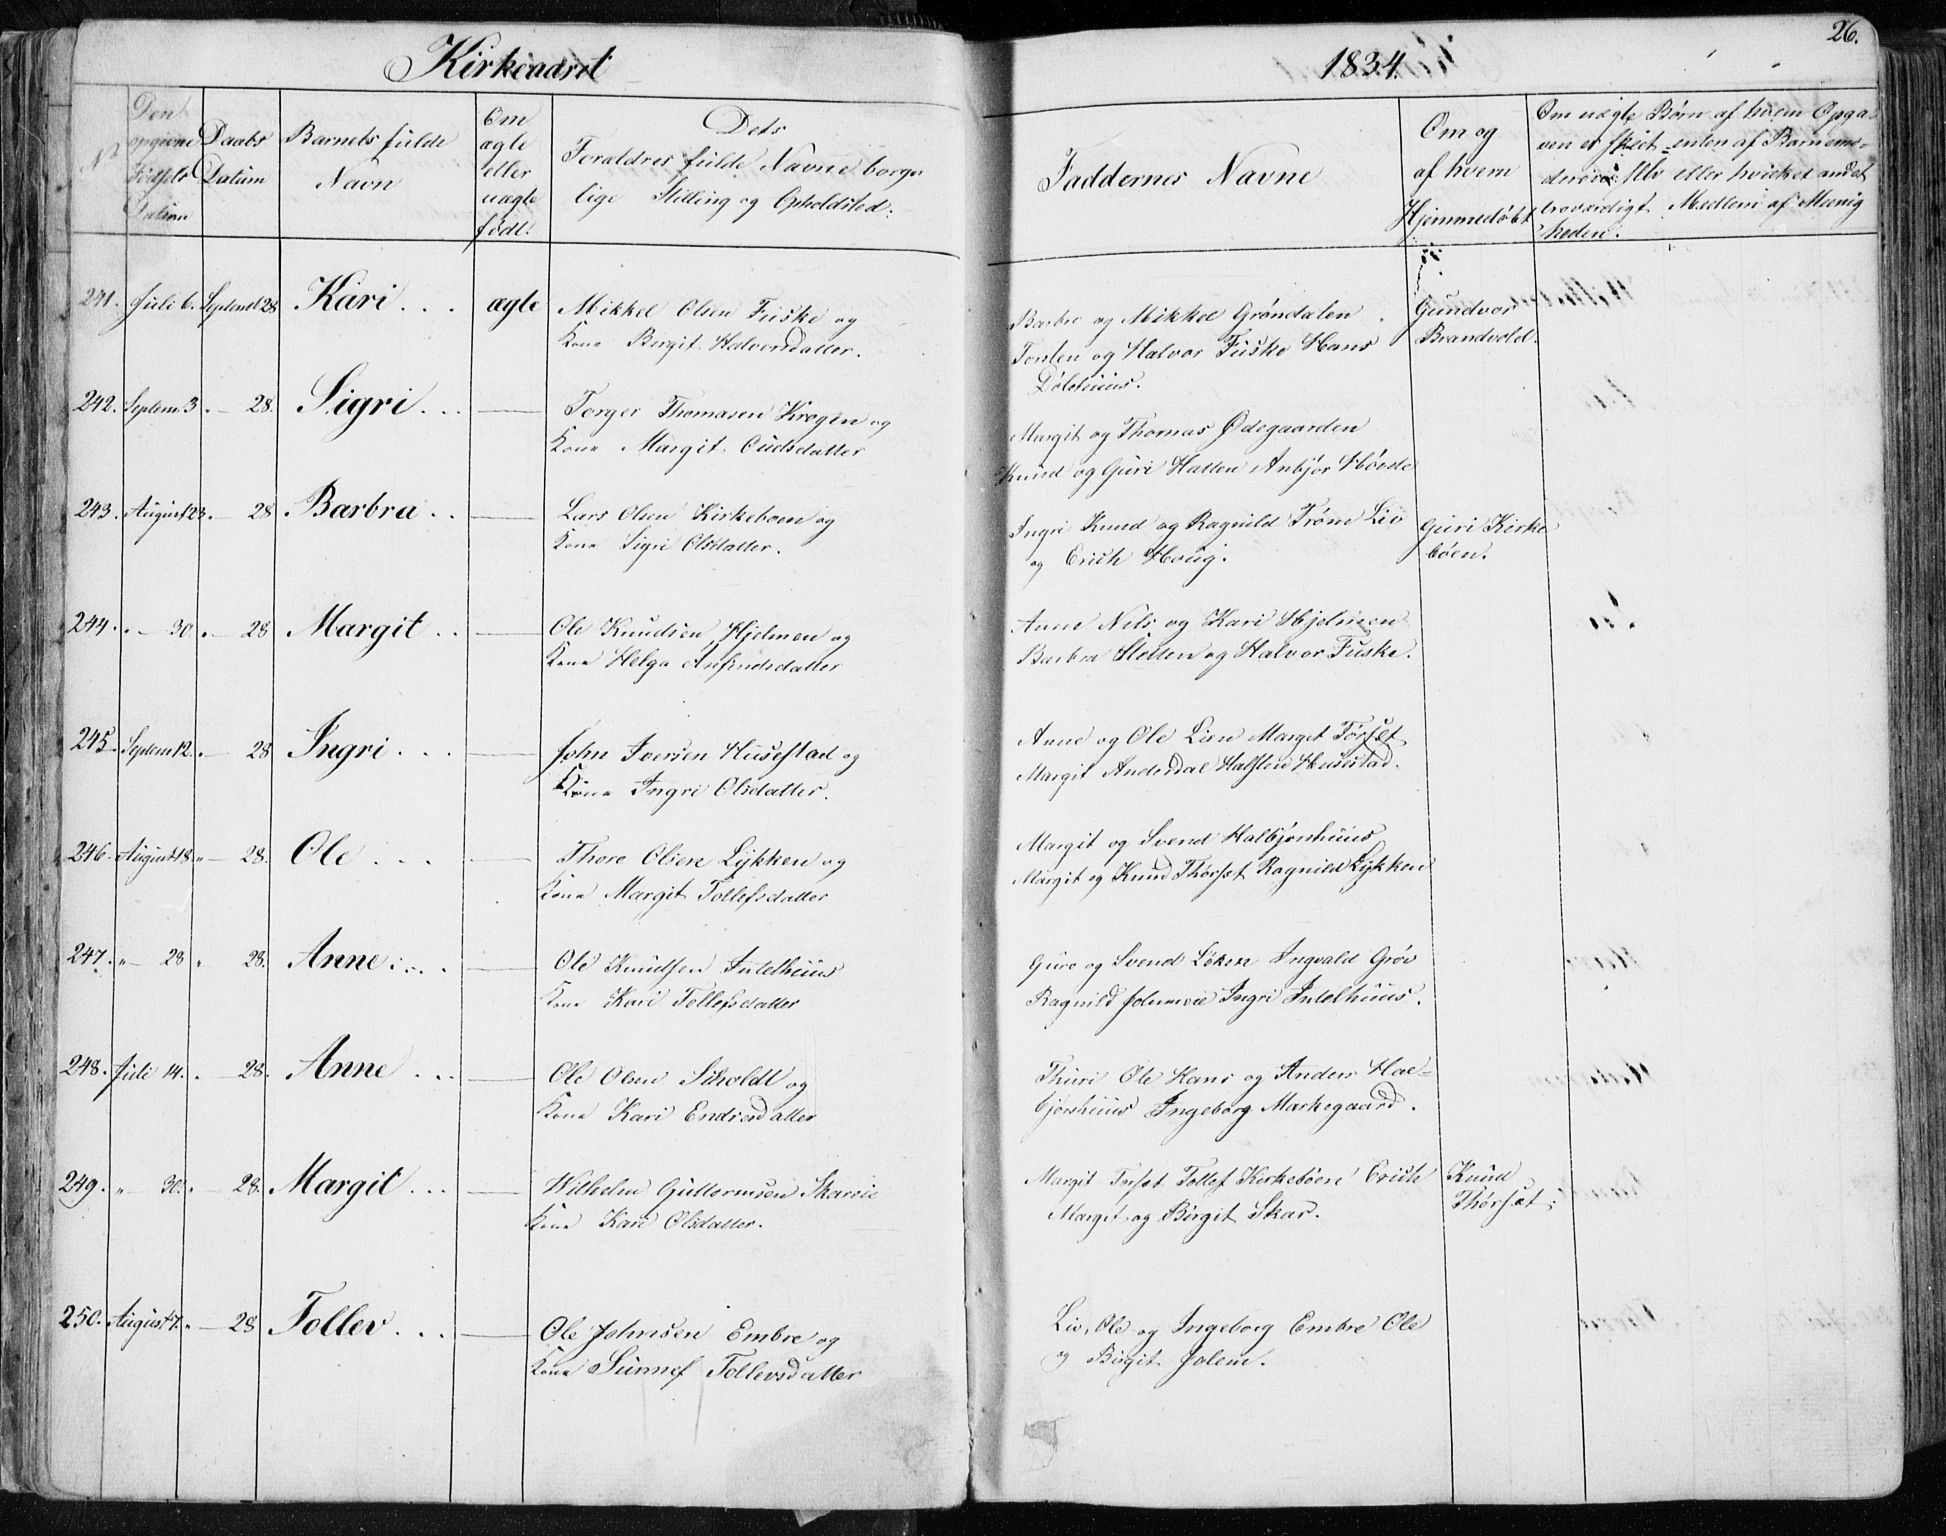 Kirkeaaret
1834.
26.
No
Den opgivne Fødsels Datum
Daabs Datum
Barnets fulde Navn
Om ægte eller uægte født.
Dets
Forældres fulde Navne borger
lige Stilling og Opholdsted.
Faddernes Navne
Om og af hvem Hjemmedøbt
Om uægte Børn af hvem Opga-
ven er skeet enten af Barnemo-
deren selv eller hvilket andet
troværdigt Medlem af Menig
heden.
241. Juli 6. Septemb 28 Kari . . . ægte Mikkel Olsen Fuske og
Kone Birgit Halvorsdatter.
Barbro og Mikkel Grøndalen
Torsten og Halvor Fuske Hans
Dølehuus.
Gundvor
Brandvold.
242. Septem. 3 . — 28. Sigri . . . — Torger Thomasen Kragen og
Kone Margit
Margit og Thomas Ødegaarden
Knud og Guri Hatten Anbjør
243. August 23. — 28 Barbra . . — Lars Olsen Kirkeboen og
Kone Sigri Olsdatter.
Ingri Knud og Ragnild Trøm Liv
og Erich Houg.
Guri Kirke
bøen.
244. . — 30 . — 28 Margit . . — Ole Knudsen Hjelmen og
Kone Helga Arfindsdatter
Anne Nils og Kari Hjelmen
Barbra Sletten og Halvor Fuske.
245. Septem 12. — 28 Ingri . . . — John Iversen Husestad og
Kone Ingri Olsdatter.
Anne og Ole Lien Marget Tørset
Margit Anderdal Halsten Husestad.
246. August 18. " — 28. Ole . . . — Thore Olsen Lykken og
Kone Margit Tollefsdatter
Margit og Svend Halbjørshuus
Margit og Knud Thørset Ragnild Lykken
247. " — 28 " 28. Anne . . . — Ole Knudsen Intelhuus
Kone Kari Tollefsdatter
Guro og Svend Løken Ingvald Grøv
Ragnild Ingri Intelhuus.
248. Juli 14. . — 28. Anne . . . — Ole Olsen Skoldt og
Kone Kari Endresdatter
Thuri Ole Hans og Anders Hal-
bjørshuus Ingeborg Markegaard.
249. " — 30. . — 28. Margit . . . — Wilhelm Guttormsen
Kone Kari Olsdatter.
Margit Torset Tollef Kirkebøen Erich
Marget og Birgit Skar.
Knud
Thørset.
250. August 7. " — 28 Tollev . . . — Ole Johnsen Embre og
Kone Sunnef Tollevsdatter
Liv, Ole og Ingeborg Embre Ole
og Birgit Jolem.